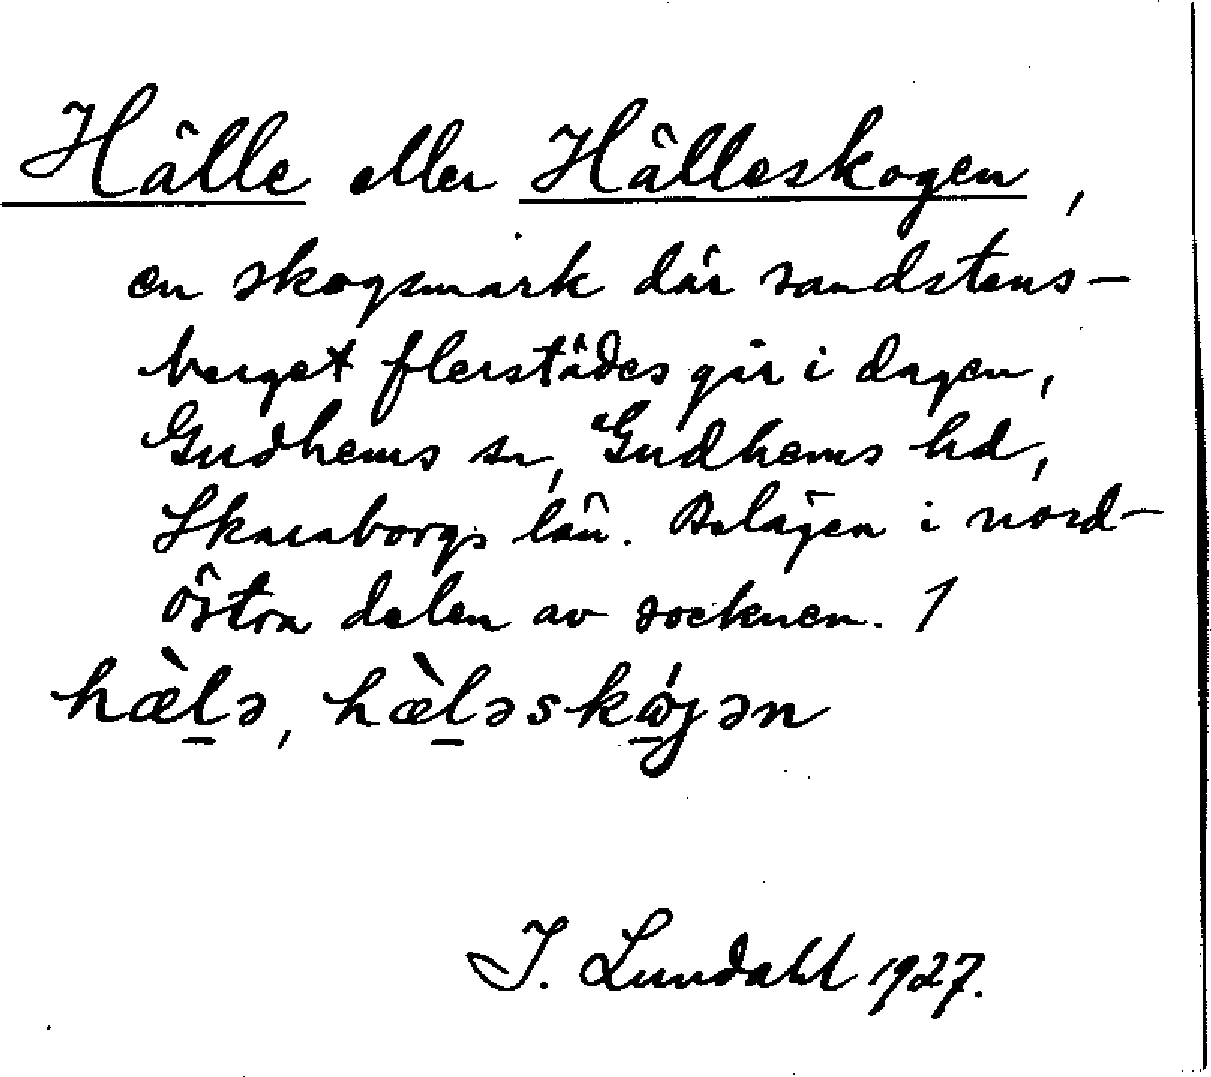 Hälle eller Hälleskogen,
en skogsmark där sandstens-
berget flerstädes går i dagen,
Gudhems sn, Gudhems hd,
Skaraborgs län. Belägen i nord-
östra delen av socknen. 1
hæ̀lə, hæ̀ləskǿjən
I. Lundahl 1927.